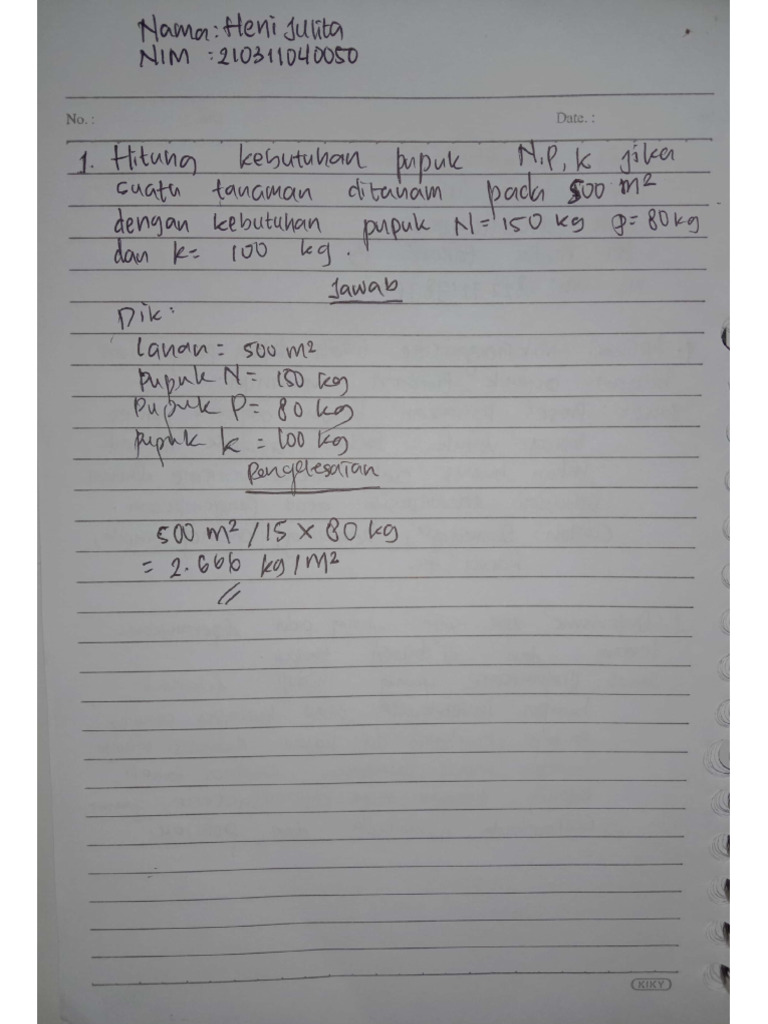 Nama: Heni Julita
NIM : 210311040050
No. :
Date. :
1. Hitung kebutuhan pupuk N, P, K jika
suatu tanaman ditanam pada 500 m²
dengan kebutuhan pupuk N = 150 kg P = 80 kg
dan K = 100 kg .
Jawab
Dik :
Lahan = 500 m²
pupuk N = 150 kg
pupuk P = 80 kg
pupuk k = 100 kg
Penyelesaian
500 m² / 15 × 80 kg
= 2.666 kg / m²
KIKY